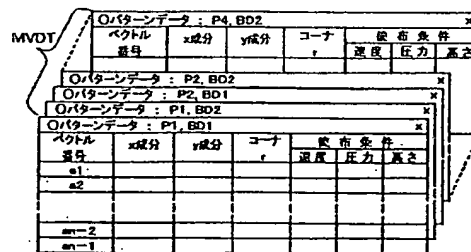 MVDT
○パターンデータ : P4, BD2 ×
ベクトル番号 x成分 y成分 コーナ r 塗布条件
速度 圧力 高さ
○パターンデータ : P2, BD2 ×
○パターンデータ : P2, BD1 ×
○パターンデータ : P1, BD2 ×
○パターンデータ : P1, BD1 ×
ベクトル番号 x成分 y成分 コーナ r 塗布条件
速度 圧力 高さ
a1
a2
an-2
an-1